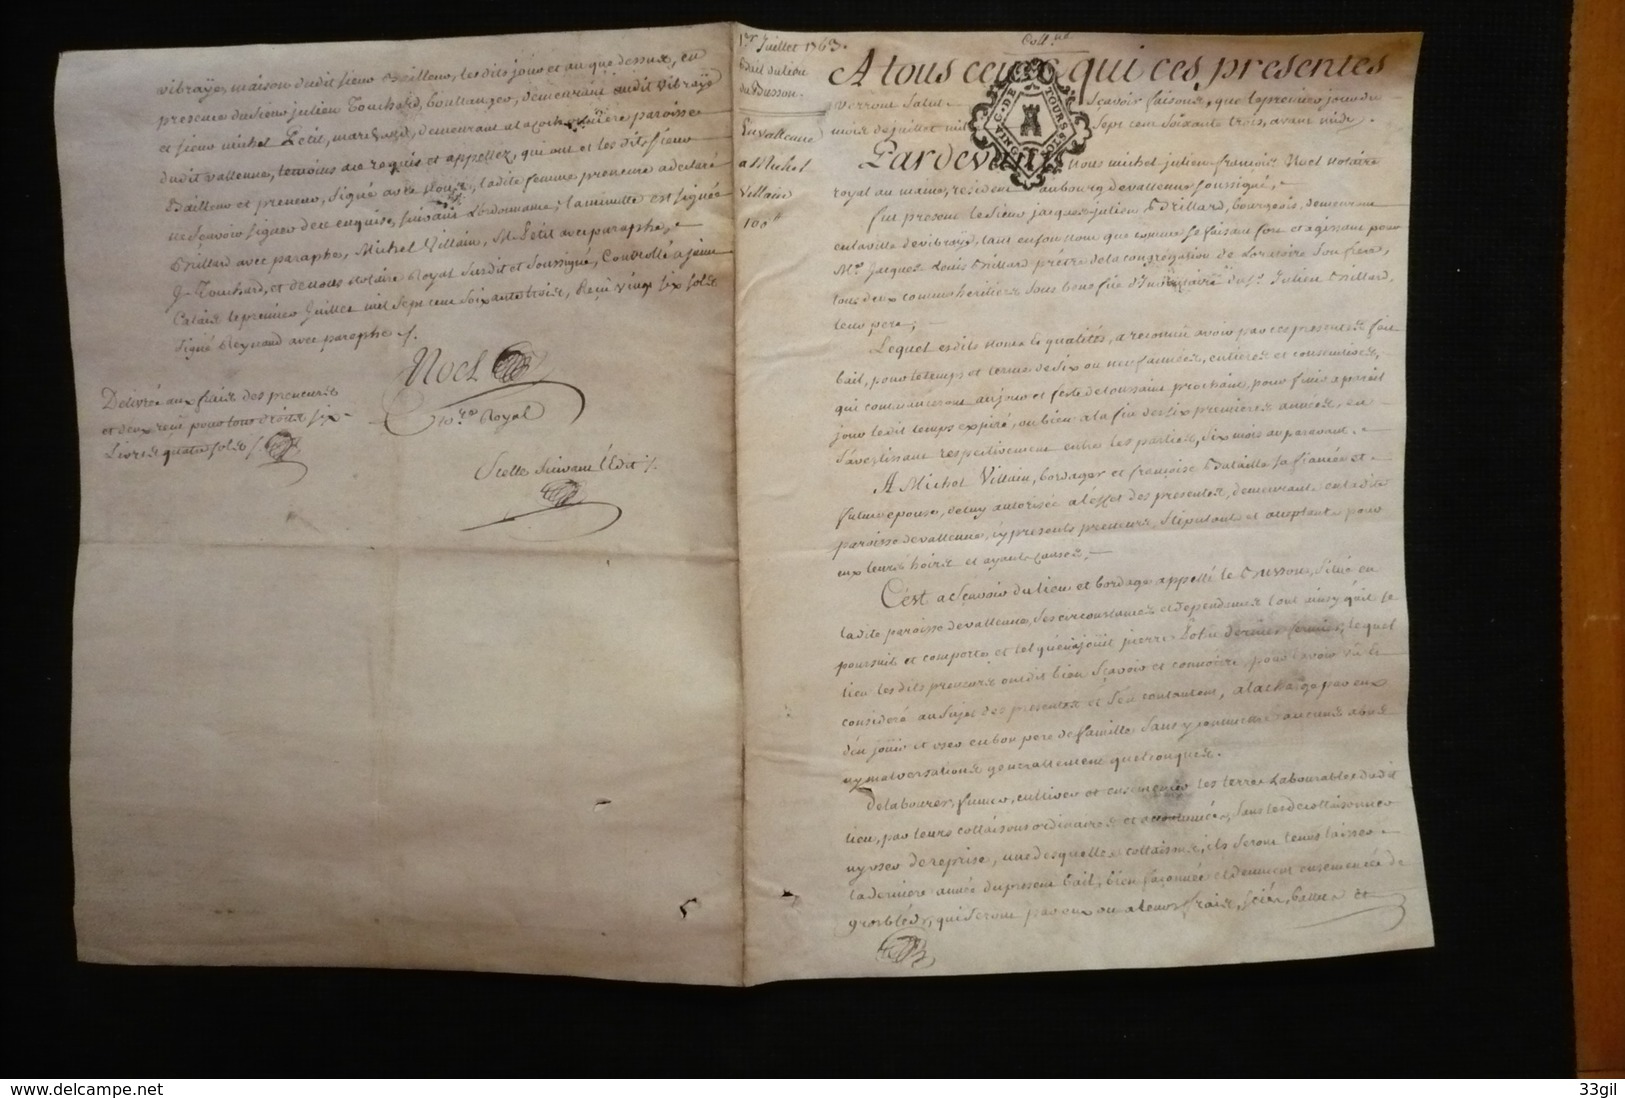 vibraye, maison dudit sieur Brillard, les dits jour et an que dessus, en
presence du sieur julien Touchard, boullanger, demeurant audit Vibraye
et sieur michel Petit, marchand, demeurant a paroisse
dudit vallenne, temoins a ce requis et appellez, qui ont et les dits sieur
Bailleur et preneur, signé avec Nous, la dite femme preneure a declaré
ne sçavoir signer de ce enquise, suivant l'ordonnance; la minutte est signée
Brillard avec paraphe, Michel Villain, M. Petit avec paraphe,
J. Touchard, et de nous Notaire Royal susdit et soussigné, Controllé a Saint
Calais le premier Juillet mil sept cent soixante trois, Reçu vingt six sols
signé Reynaud avec paraphe ./.
Noel
No.re Royal
Delivré aux frais des preneurs
et deux reçu pour tous droits six
Livres quatre sols ./.
Scellé suivant l'Edit ./.
1er Juillet 1763.
Bail du lieu
du Busson.
En vallenne
a Michel
Villain
100tt
Coll.né
A tous ceux qui ces presentes
verront salut sçavoir faisons, que le premier jour du
mois de juillet mil sept cent soixante trois, avant midy.
G. DE TOURS
VINGT SOLS
Pardevant Nous michel julien françois Noel notaire
royal au maine, résident au bourg de vallenne soussigné,
fut present le sieur jacques julien Brillard, bourgeois, demeurant
en la ville de vibraye, tant en son nom que comme se faisant fort et agissant pour
M.re Jacques Louis Brillard prêtre de la congrégation de L'oratoire son frere,
tous deux comme heritiers sous benefice d'Inventaire du s.r Julien Brillard,
leur pere;
Lequel es dits noms & qualités, a reconnu avoir par ces presentes fait
bail, pour le temps et terme de six ou neuf années, entieres et consecutives,
qui commenceront au jour et feste de toussaint prochain, pour finir a pareil
jour le dit temps expiré, ou bien a la fin des six premieres années, en
s'avertissant respectivement entre les parties, six mois auparavant.
A Michel Villain, bordager et françoise Bataille sa fiancée et
future epouse, de luy autorisée a l'effet des presentes, demeurant en la dite
paroisse de vallenne, cy presents preneurs, stipulants et acceptants pour
eux leurs hoirs et ayants causes,
C'est a sçavoir du lieu et bordage appellé le Busson, situé en
la dite paroisse de vallenne, ses circonstances et dépendances tout ainsy qu'il se
poursuit et comporte et tel qu'en a joüit pierre dernier fermier, lequel
lieu les dits preneurs ont dit bien sçavoir et connoitre, pour l'avoir vu &
consideré au sujet des presentes et s'en contentent, a la charge par eux
d'en joüir et user en bon pere de famille sans y commettre aucuns abus
ny malversations generallement quelconques.
De labourer, fumer, cultiver et ensemencer les terres Labourables dudit
lieu, par leurs collaisons ordinaires et accoutumées, sans les decollaisonner
ny user de reprise, une desquelles collaisons, ils seront tenus laisser
la derniere année du present bail, bien façonnée et deument ensemencée de
gros bleds, qui seront par eux ou a leurs frais, sciés, battus et
33gil